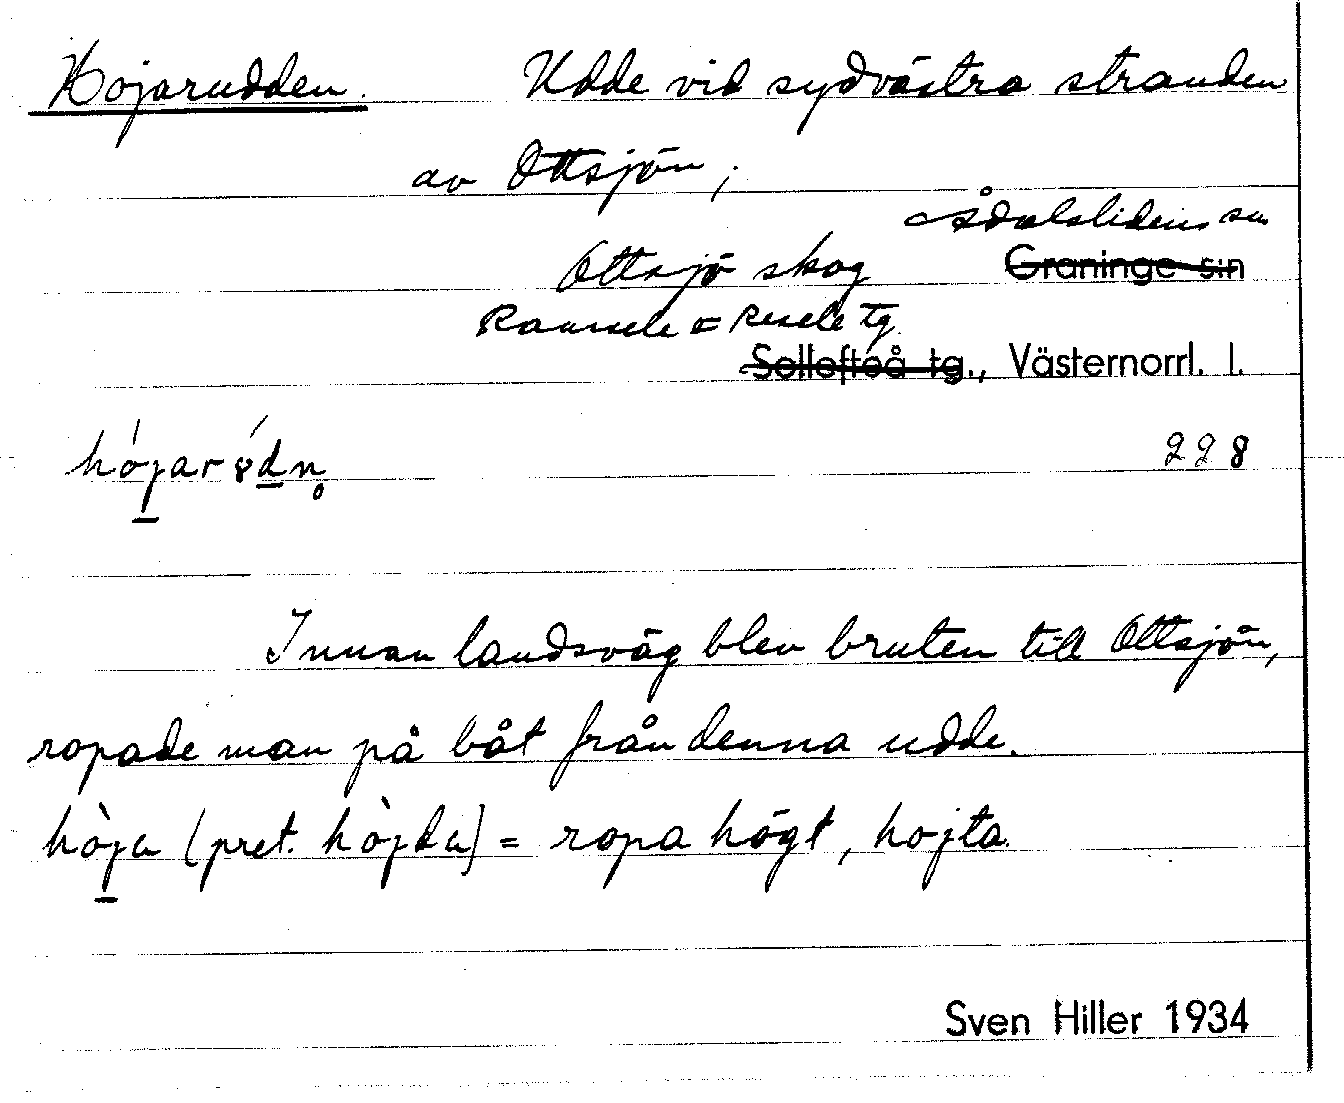 Hojarudden. Udde vid sydvästra stranden
av Ottsjön;
Ådalslidens sn
Ottsjö skog Graninge sn
Ramsele = Resele tg.
Sollefteå tg., Västernorrl. l.
hójarúdn 228
Innan landsväg blev bruten till Ottsjön,
ropade man på båt från denna udde.
hòja (pret. hòjda) = ropa högt, hojta.
Sven Hiller 1934